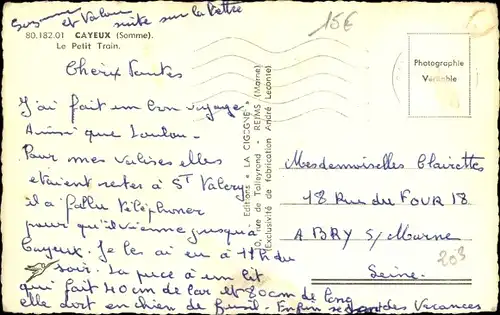 Somme et Valou suite sur la lettre
15€
80.182.01 CAYEUX (Somme).
Le Petit Train.
Cheix Tantes
J'ai fait un bon voyage
Ainsi que Loulou.
Pour mes valises elles
etaient restes à ST Valery
il a fallu téléphoner
pour qu'il vienne jusqu'a
Cayeux. Je les ai eu à 11h du
soir. La puce à un lit
qui fait 40 cm de lar et 80 cm de long
elle dort en chien de fusil. Enfin se sont des vacances
Editions « LA CIGOGNE »
10, rue de Talleyrand - REIMS (Marne)
(Exclusivité de fabrication André Leconte)
Photographie
Véritable
Mesdemoiselles Clairettes
18 Rue du FOUR 18
A BRY S/ Marne
Seine.
203